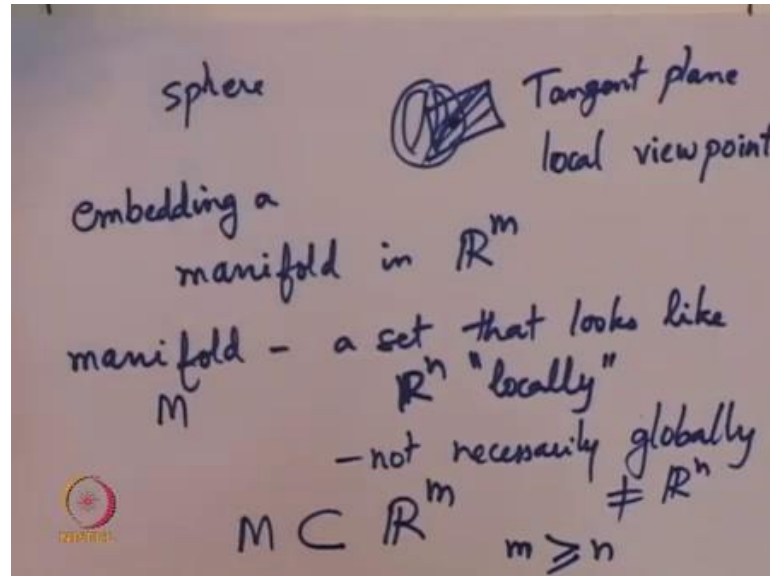 sphere
Tangent plane
local viewpoint
embedding a
manifold in ℝᵐ
manifold - a set that looks like
M ℝⁿ "locally"
- not necessarily globally
≠ ℝⁿ
M ⊂ ℝᵐ m ≥ n
NPTEL